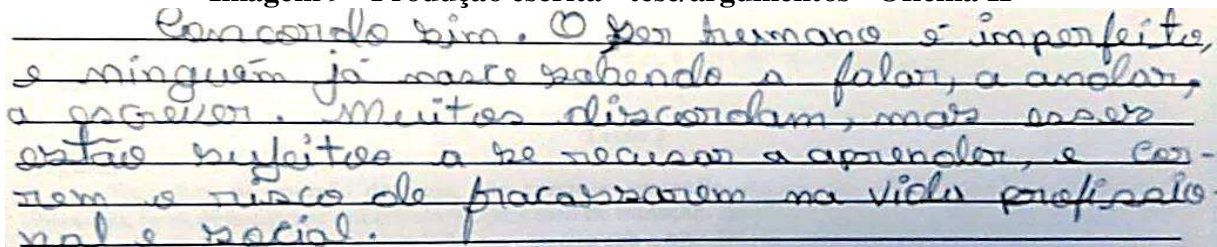 Imagem – Produção escrita – tese/argumentos – Oficina II
Concordo sim. O ser humano é imperfeito,
e ninguém já nasce sabendo a falar, a andar,
a escrever. Muitos discordam, mais esses
estão sujeitos a se recusar a aprender, e cor-
rem o risco de fracassarem na vida profissio-
nal e social.